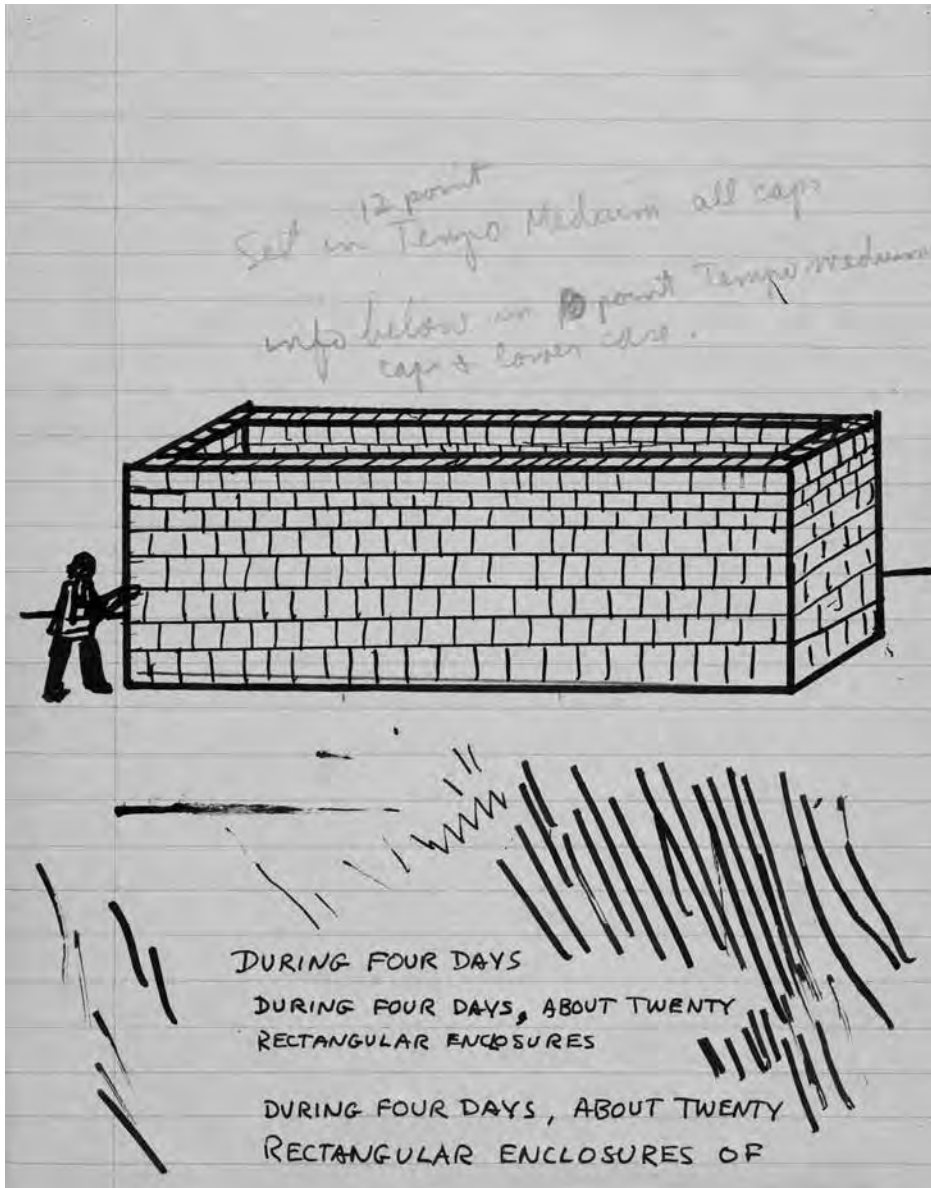 12 point
Set in Tempo Medium all caps
info below in point Tempo medium
caps & lower case.
DURING FOUR DAYS
DURING FOUR DAYS, ABOUT TWENTY
RECTANGULAR ENCLOSURES
DURING FOUR DAYS, ABOUT TWENTY
RECTANGULAR ENCLOSURES OF